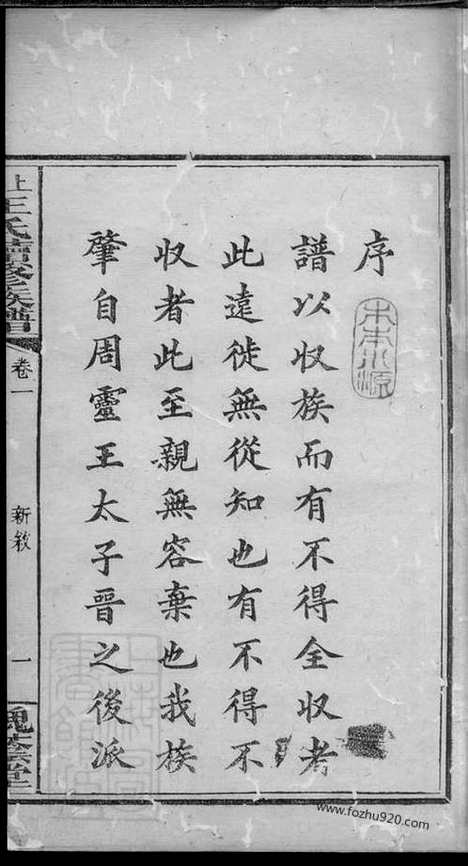 序
木本水源
譜以收族而有不得全收者
此遠徙無從知也有不得不
收者此至親無容棄也我族
肇自周靈王太子晉之後派
上王氏續修族譜
卷一
新敘
一
www.fozhu920.com